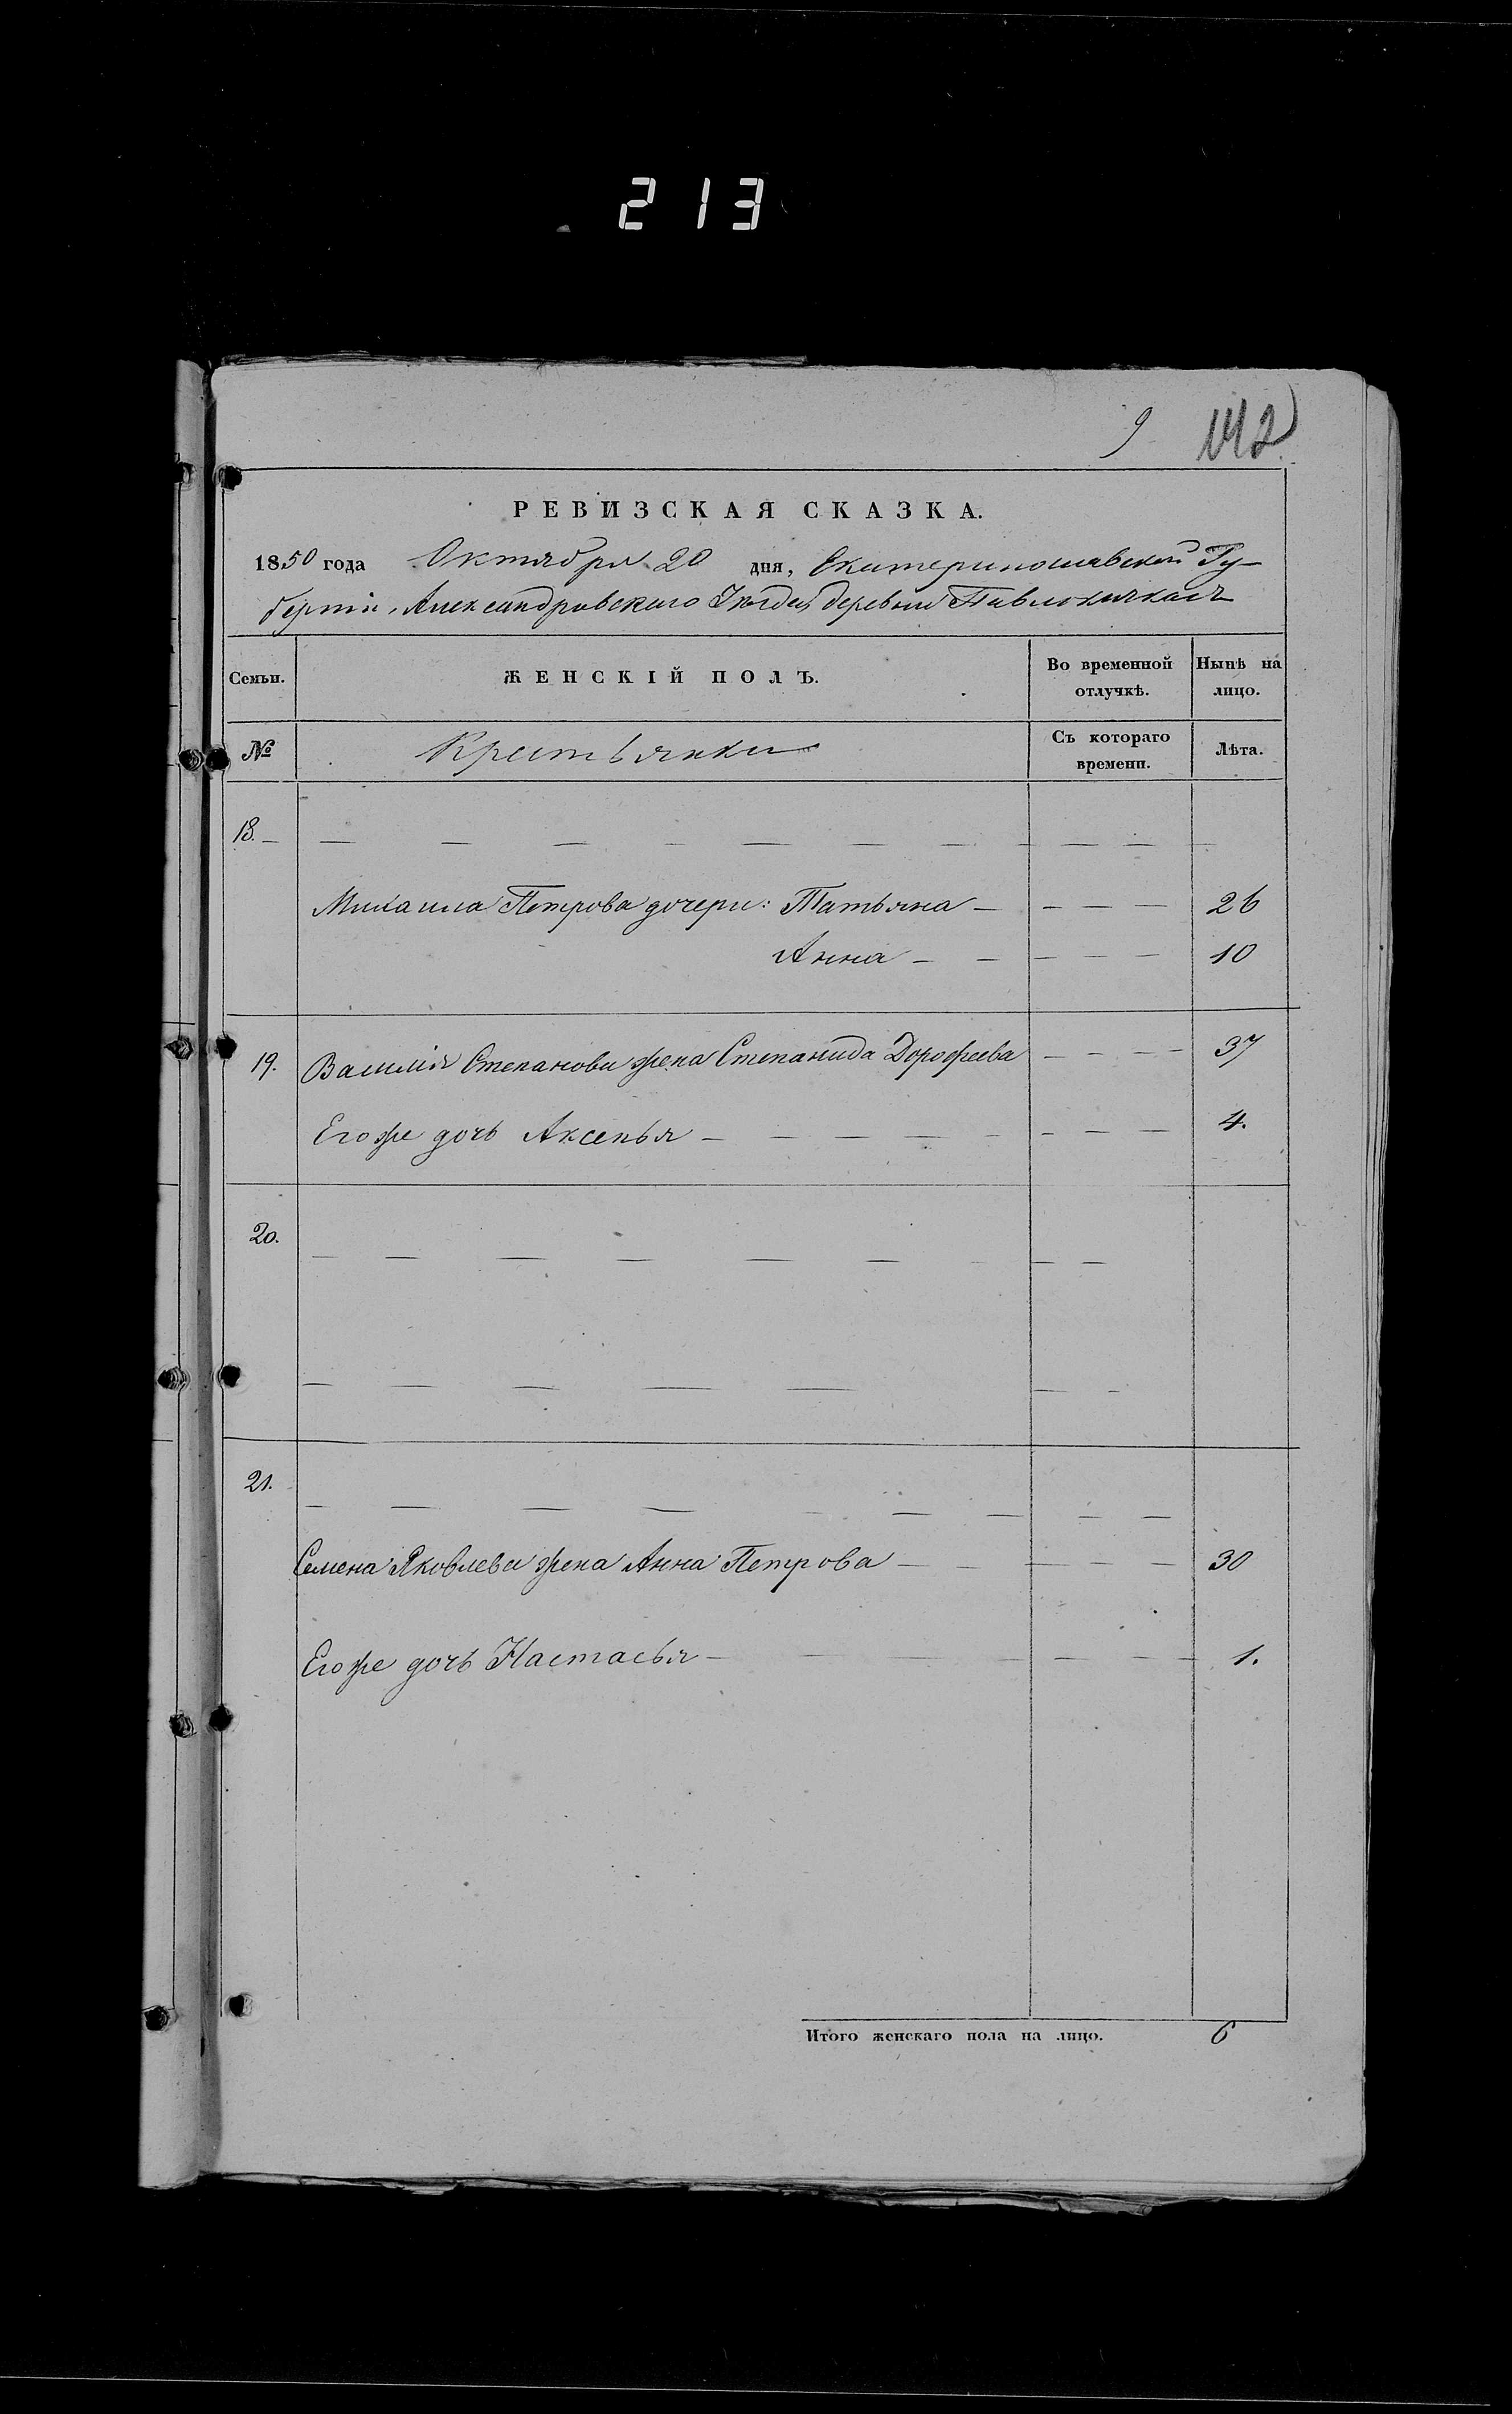 213
9 142
РЕВИЗСКАЯ СКАЗКА.
1850 года Октября 20 дня, Екатеринославской Гу-
берніи, Александровскаго Уѣзда, деревни Павлокичкасъ
Семьи. ЖЕНСКІЙ ПОЛЪ. Во временной отлучкѣ. Нынѣ на лицо.
№ Крестьянки Съ котораго времени. Лѣта.
18. — — — — — — — — — — —
Михаила Петрова дочери: Татьяна — — — — 26
Анна — — — — — 10
19. Василія Степанова жена Степанида Дорофеева — — — — 37
Егоже дочь Аксенья — — — — — — — — 4.
20. — — — — — — — —
— — — — — — —
21. — — — — — — — — — —
Семена Яковлева жена Анна Петрова — — — — — 30
Егоже дочь Настасья — — — — — — — 1.
Итого женскаго пола на лицо. 6